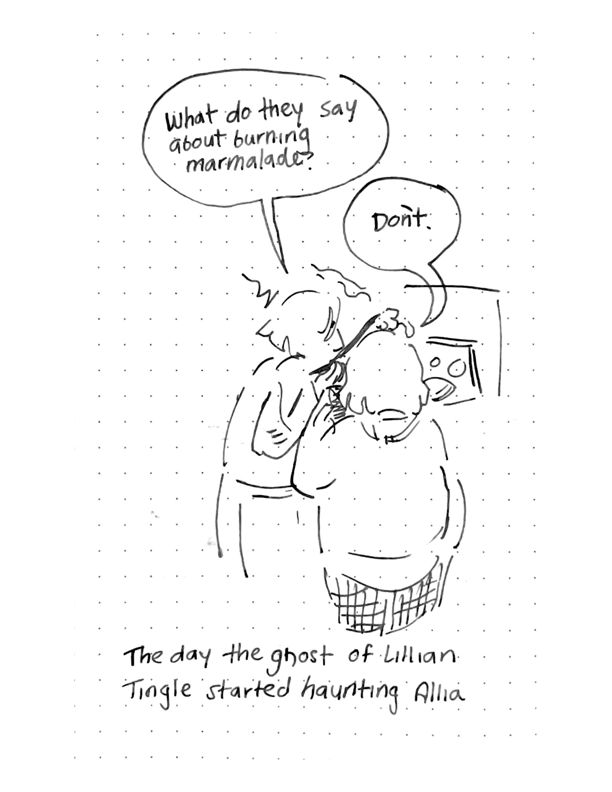 What do they say
about burning
marmalade?
Don't.
The day the ghost of Lillian
Tingle started haunting Allia